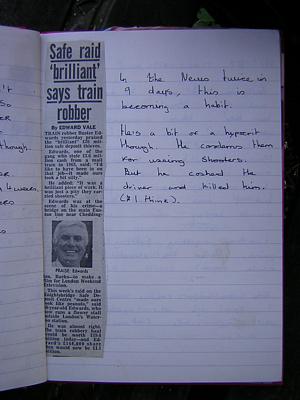 Safe raid
'brilliant'
says train
robber
By EDWARD VALE
TRAIN robber Buster Ed-
wards yesterday praised
the "brilliant"
safe deposit thieves.
Edwards, one of the
gang who stole £2.6 mil-
lion cash from a mail
train in 1963, said: "I'd
like to have been in on
that job—it made ours
look a bit silly."
He added: "It was a
brilliant piece of work. It
was just a pity they car-
ried shooters."
Edwards was at the
scene of his crime—a
bridge on the main Eus-
ton line near Chedding-
PRAISE: Edwards
ton, Bucks—to make a
film for London Weekend
Television.
This week's raid on the
Knightsbridge Safe De-
posit Centre "made ours
look like peanuts," said
-year-old Edwards, who
now runs a flower stall
outside London's Water-
loo station.
He was almost right.
The train robbery haul
would be worth
million today—and Ed-
wards's share
then would now be
million.
In the News twice in
9 days, this is
becoming a habit.
He's a bit of a hypocrit
though. He condems them
for useing shooters.
But he coshed the
driver and killed him.
(I think).
though.
weeks.